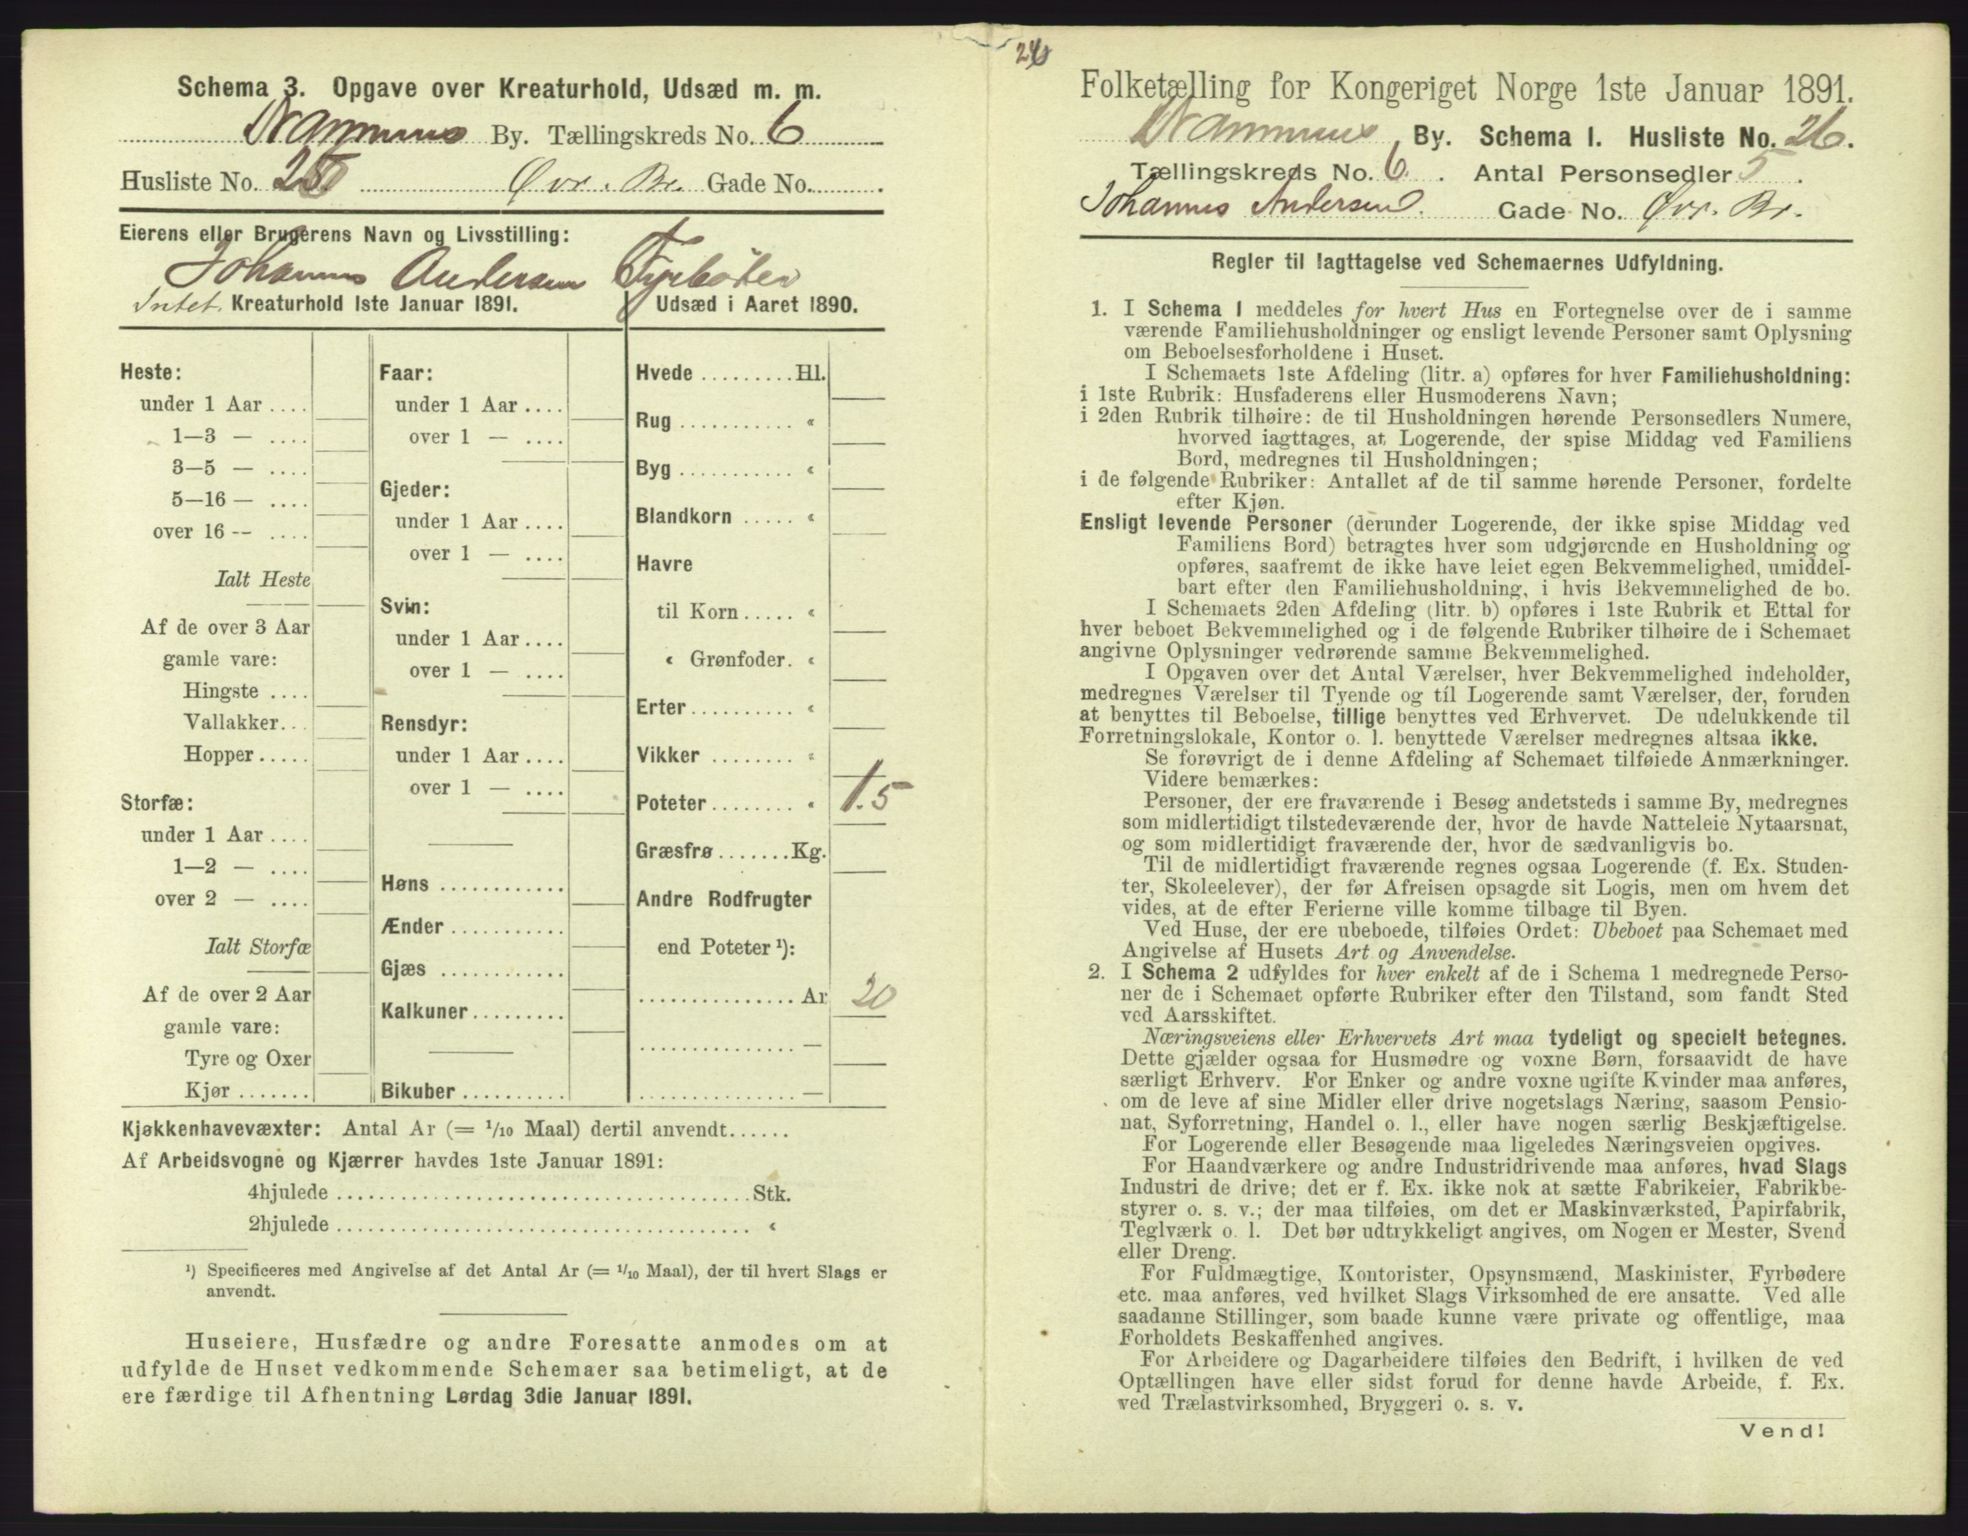 26
Schema 3. Opgave over Kreaturhold, Udsæd m. m.
Drammens By. Tællingskreds No. 6
Husliste No. Øvr. Br. Gade No. .
Eierens eller Brugerens Navn og Livsstilling:
Johannes Andersen Fyrbøder
Intet. Kreaturhold 1ste Januar 1891. Udsæd i Aaret 1890.
Heste:
under 1 Aar ....
1—3 — ....
3—5 — ....
5—16 — ....
over 16 -- ....
Ialt Heste
Af de over 3 Aar
gamle vare:
Hingste ....
Vallakker...
Hopper.....
Storfæ:
under 1 Aar ....
1—2 — ....
over 2 — ....
Ialt Storfæ
Af de over 2 Aar
gamle vare:
Tyre og Oxer
Kjør .......
Faar:
under 1 Aar ....
over 1 — ....
Gjeder:
under 1 Aar ....
over 1 — ....
Svin:
under 1 Aar ....
over 1 — ....
Rensdyr:
under 1 Aar ....
over 1 — ....
Høns ............
Ænder ...........
Gjæs ............
Kalkuner.........
Bikuber ..........
Hvede .........Hl.
Rug ........... «
Byg ........... «
Blandkorn ..... «
Havre
til Korn ..... «
« Grønfoder. «
Erter.......... «
Vikker ........ «
Poteter........ « 1.5
Græsfrø.......Kg.
Andre Rodfrugter
end Poteter ¹):
...............Ar 20
...............—
...............—
Kjøkkenhavevæxter: Antal Ar (= 1/10 Maal) dertil anvendt......
Af Arbeidsvogne og Kjærrer havdes 1ste Januar 1891:
4hjulede ......................................Stk.
2hjulede ...................................... «
¹) Specificeres med Angivelse af det Antal Ar (= 1/10 Maal), der til hvert Slags er
anvendt.
Huseiere, Husfædre og andre Foresatte anmodes om at
udfylde de Huset vedkommende Schemaer saa betimeligt, at de
ere færdige til Afhentning Lørdag 3die Januar 1891.
Folketælling for Kongeriget Norge 1ste Januar 1891.
Drammens By. Schema I. Husliste No. 26.
Tællingskreds No. 6. Antal Personsedler 5.
Johannes Andersen. Gade No. Øvr. Br.
Regler til Iagttagelse ved Schemaernes Udfyldning.
1. I Schema I meddeles for hvert Hus en Fortegnelse over de i samme
værende Familiehusholdninger og ensligt levende Personer samt Oplysning
om Beboelsesforholdene i Huset.
I Schemaets 1ste Afdeling (litr. a) opføres for hver Familiehusholdning:
i 1ste Rubrik: Husfaderens eller Husmoderens Navn;
i 2den Rubrik tilhøire: de til Husholdningen hørende Personsedlers Numere,
hvorved iagttages, at Logerende, der spise Middag ved Familiens
Bord, medregnes til Husholdningen;
i de følgende Rubriker: Antallet af de til samme hørende Personer, fordelte
efter Kjøn.
Ensligt levende Personer (derunder Logerende, der ikke spise Middag ved
Familiens Bord) betragtes hver som udgjørende en Husholdning og
opføres, saafremt de ikke have leiet egen Bekvemmelighed, umiddel-
bart efter den Familiehusholdning, i hvis Bekvemmelighed de bo.
I Schemaets 2den Afdeling (litr. b) opføres i 1ste Rubrik et Ettal for
hver beboet Bekvemmelighed og i de følgende Rubriker tilhøire de i Schemaet
angivne Oplysninger vedrørende samme Bekvemmelighed.
I Opgaven over det Antal Værelser, hver Bekvemmelighed indeholder,
medregnes Værelser til Tyende og til Logerende samt Værelser, der, foruden
at benyttes til Beboelse, tillige benyttes ved Erhvervet. De udelukkende til
Forretningslokale, Kontor o. l. benyttede Værelser medregnes altsaa ikke.
Se forøvrigt de i denne Afdeling af Schemaet tilføiede Anmærkninger.
Videre bemærkes:
Personer, der ere fraværende i Besøg andetsteds i samme By, medregnes
som midlertidigt tilstedeværende der, hvor de havde Natteleie Nytaarsnat,
og som midlertidigt fraværende der, hvor de sædvanligvis bo.
Til de midlertidigt fraværende regnes ogsaa Logerende (f. Ex. Studen-
ter, Skoleelever), der før Afreisen opsagde sit Logis, men om hvem det
vides, at de efter Ferierne ville komme tilbage til Byen.
Ved Huse, der ere ubeboede, tilføies Ordet: Ubeboet paa Schemaet med
Angivelse af Husets Art og Anvendelse.
2. I Schema 2 udfyldes for hver enkelt af de i Schema 1 medregnede Perso-
ner de i Schemaet opførte Rubriker efter den Tilstand, som fandt Sted
ved Aarsskiftet.
Næringsveiens eller Erhvervets Art maa tydeligt og specielt betegnes.
Dette gjælder ogsaa for Husmødre og voxne Børn, forsaavidt de have
særligt Erhverv. For Enker og andre voxne ugifte Kvinder maa anføres,
om de leve af sine Midler eller drive nogetslags Næring, saasom Pensio-
nat, Syforretning, Handel o. l., eller have nogen særlig Beskjæftigelse.
For Logerende eller Besøgende maa ligeledes Næringsveien opgives.
For Haandværkere og andre Industridrivende maa anføres, hvad Slags
Industri de drive; det er f. Ex. ikke nok at sætte Fabrikeier, Fabrikbe-
styrer o. s. v.; der maa tilføies, om det er Maskinværksted, Papirfabrik,
Teglværk o. l. Det bør udtrykkeligt angives, om Nogen er Mester, Svend
eller Dreng.
For Fuldmægtige, Kontorister, Opsynsmænd, Maskinister, Fyrbødere
etc. maa anføres, ved hvilket Slags Virksomhed de ere ansatte. Ved alle
saadanne Stillinger, som baade kunne være private og offentlige, maa
Forholdets Beskaffenhed angives.
For Arbeidere og Dagarbeidere tilføies den Bedrift, i hvilken de ved
Optællingen have eller sidst forud for denne havde Arbeide, f. Ex.
ved Trælastvirksomhed, Bryggeri o. s. v.
Vend!